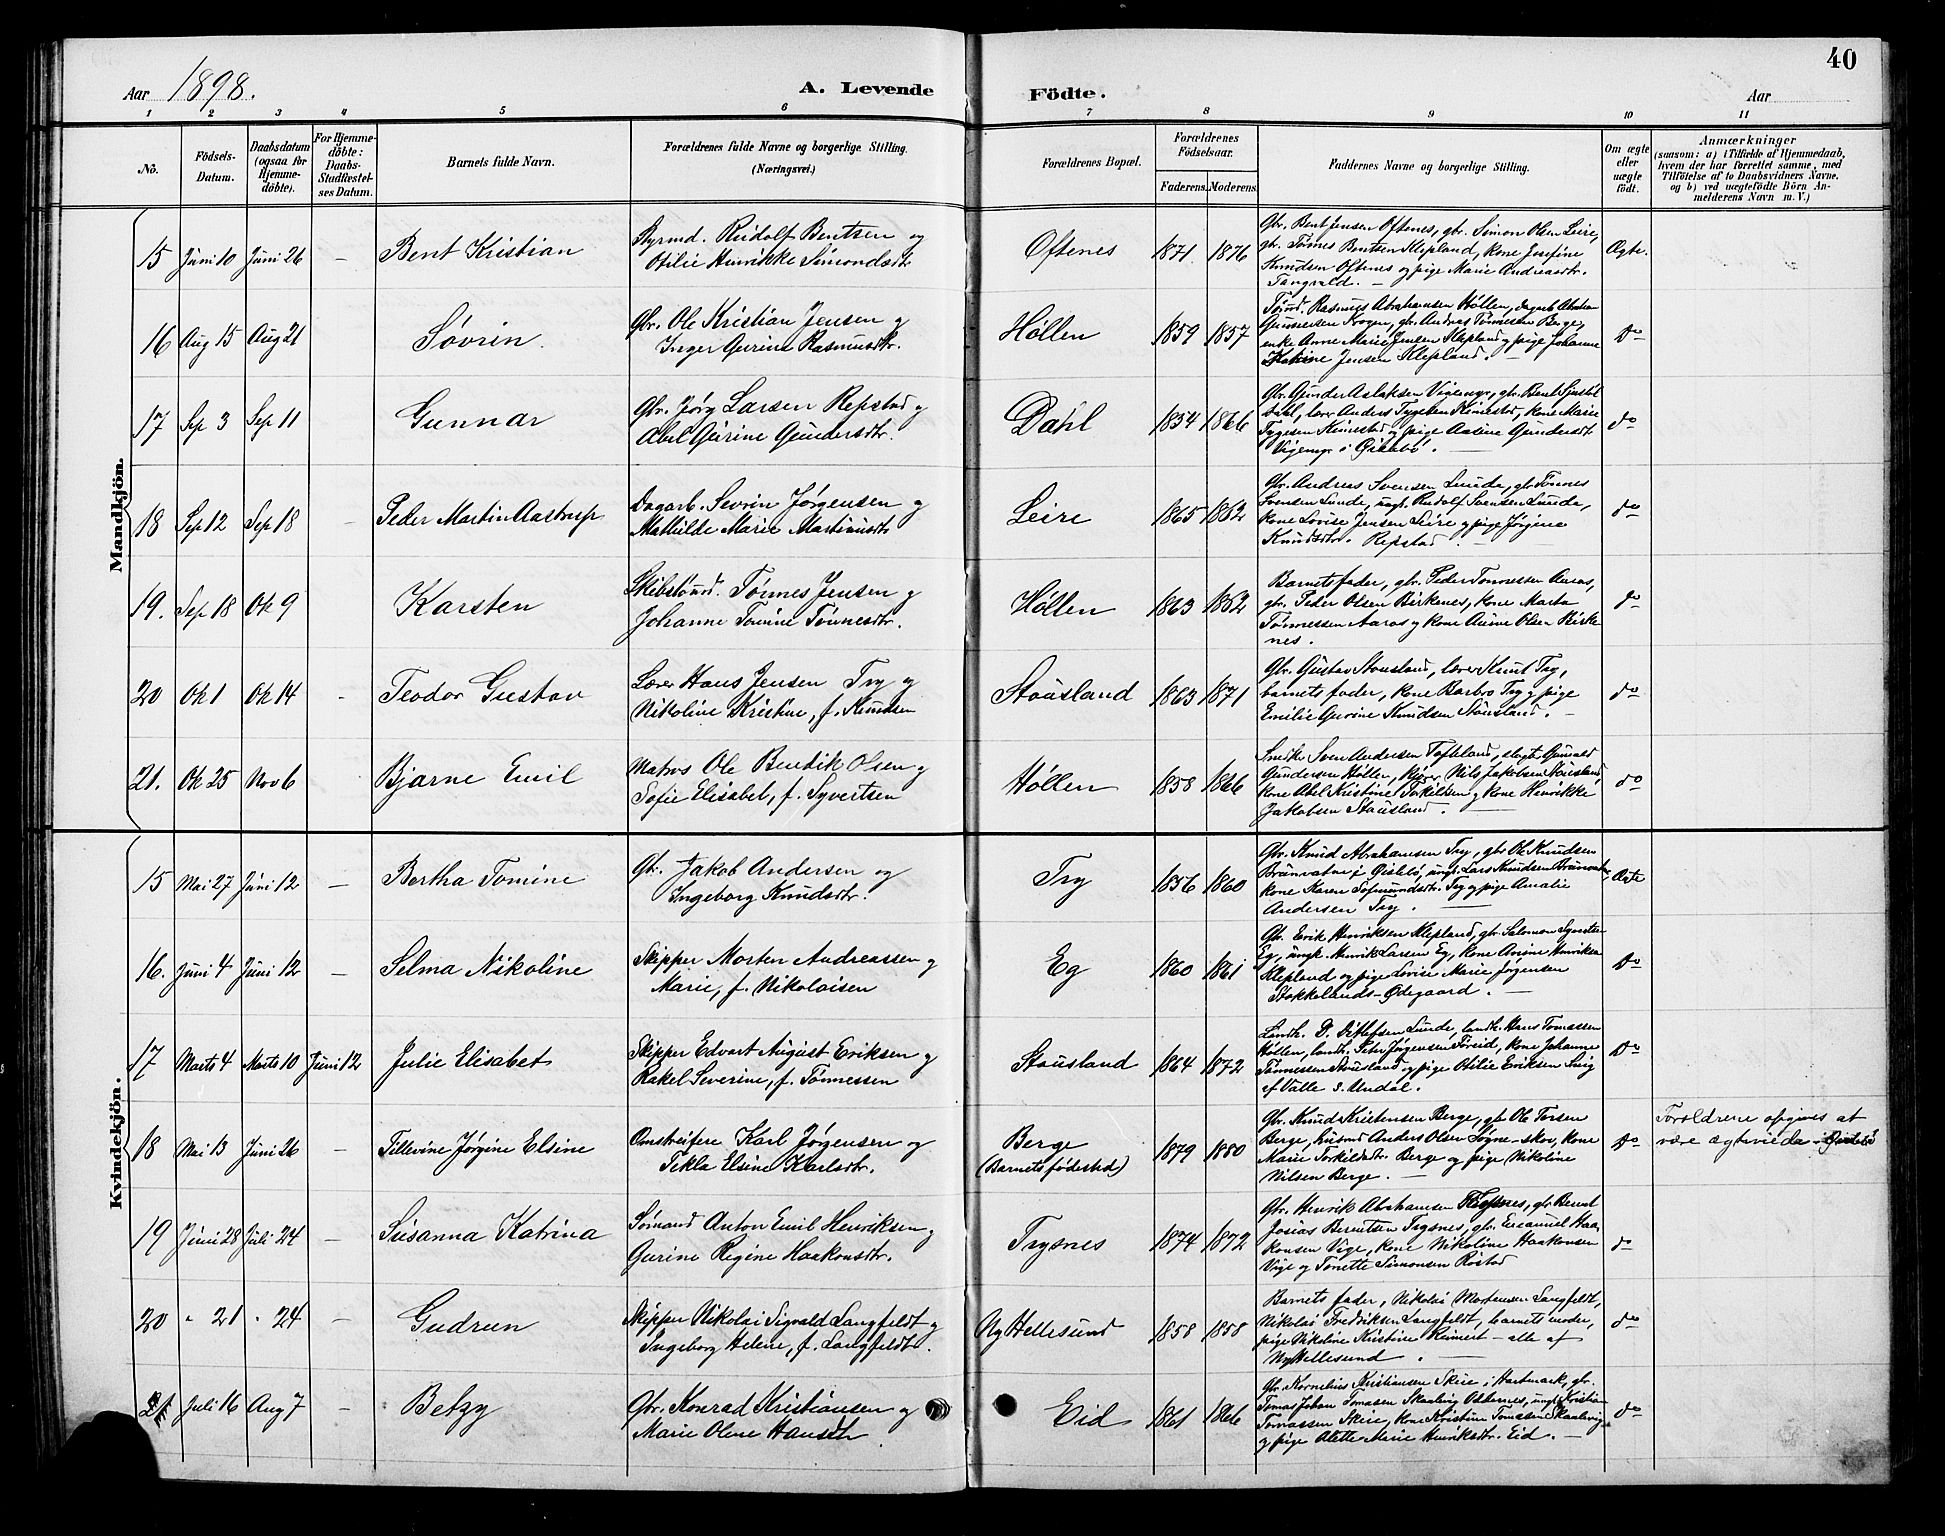 40
Aar 1898.
A. Levende Födte.
Aar
1 2 3 4 5 6 7 8 9 10 11
No.
Födsels-
Datum.
Daabsdatum
(ogsaa for
Hjemme-
döbte).
For Hjemme-
döbte:
Daabs-
Stadfæstel-
ses Datum.
Barnets fulde Navn.
Forældrenes fulde Navne og borgerlige Stilling.
(Næringsvei.)
Forældrenes Bopæl.
Forældrenes
Födselsaar.
Faderens. Moderens.
Faddernes Navne og borgerlige Stilling.
Om ægte
eller
uægte
födt.
Anmærkninger
(saasom: a) i Tilfælde af Hjemmedaab,
hvem der har forrettet samme, med
Tilföielse af to Daabsvidners Navne,
og b) ved uægtefödte Börn An-
melderens Navn m. V.)
Mandkjön.
15 Juni 10 Juni 26 — Bent Kristian
Styrmd. Rudolf Bentsen og
Otilie Henrikke Simondsdtr
Oftenes 1871 1876
Gbr. Bent Jensen Oftenes, gbr. Simon Olsen Leire,
gbr. Tönnes Bentsen Klepland, kone Josefine
Knudsen Oftenes og pige Marie Andreasdtr.
Tangvald. —
Ægte.
16 Aug 15 Aug 21 Sövrin
Gbr. Ole Kristian Jensen og
Inger Gurine Rasmusdtr.
Höllen 1859 1857
Tömd. Rasmus Abrahamsen Höllen, dagarb. Abraham
Gunnersen Krogen, gbr. Andras Tönnesen Berge,
enke Anne Marie Jensen Klepland og pige Johanne
Katrine Jensen Klepland. —
Do
17 Sep 3 Sep 11 Gunnar
Gbr. Jörg Larsen Repstad og
Abel Gurine Gundersdtr.
Dahl 1854 1866
Gbr. Gunder Aslaksen Vigemyr, gbr. Bent
Dahl, lærer Anders Tygesen Kimestad, kone Marie
Tygesen Kimestad og pige Aasine Gundersdt.
Vigemyr i Öislebö.
do
18 Sep 12 Sep 18 — Peder Martin Aastrup
Dagarb. Sevrin Jörgensen og
Mathilde Marie Martinusdtr
Leire 1865 1862
Gbr. Andreas Svensen Lunde, gbr Tönnes
Svensen Lunde, ungk. Rudolf Svensen Lunde,
kone Lovise Jensen Leire og pige Jörgine
Knudsdtr. Repstad. —
do
19. Sep 18 Ok 9 Karsten
Skibstömd. Tönnes Jensen og
Johanne Tomine Tönnesdtr.
Höllen 1863 1862
Barnets fader, gbr. Peder Tönnessen Aaros,
gbr. Peder Olsen Birkenes, kone Marta
Tönnessen Aaros og kone Anine Olsen Birke
nes.
do
20 Ok 1 Ok 14 — Teodor Gustav
Lærer Hans Jensen Try og
Nikoline Kristine, f. Knudsen
Stausland 1863 1871
Gbr. Gustav Stausland, lærer Knut Try,
barnets fader, kone Barbro Try og pige
Emilie Gurine Knudsen Stausland. —
do
21. Ok 25 Nov 6 Bjarne Emil
Matros Ole Bendik Olsen og
Sofie Elisabet, f. Syvertsen
Höllen 1858 1866
Snedker Sven Andersen Tofteland, slagter
Gundersen Höllen, Nils Jakobsen Stausland,
kone Abel Kristine Torkildsen og kone Henrikke
Jakobsen Stausland. —
do
Kvindekjön.
15 Mai 27 Juni 12 — Bertha Tomine
Gbr. Jakob Andersen og
Ingeborg Knudsdtr.
Try 1856 1860
Gbr. Knud Abrahamsen Try, gbr Ole Knudsen
Brunvatne i Öislebö, ungk. Lars Knudsen Brunvatne,
kone Karen Sofmundsdtr. Try og pige Amalie
Andersen Try. —
Ægte
16. Juni 4 Juni 12 — Selma Nikoline
Skipper Morten Andreassen og
Marie, f. Nikolaisen
Eg 1860 1861
Gbr. Erik Henriksen Klepland, gbr Salomon Syverts
Eg, ungk. Henrik Larsen Eg, kone Anine Henriksen
Klepland og pige Lovise Marie Jörgensen
Stokkelands-Ödegaard. —
Do
17 Marts 4 Marts 10 Juni 12 Julie Elisabet
Skipper Edvart August Eriksen og
Rakel Severine, f. Tönnessen
Stausland 1864 1872
Landh. D. Ditlefsen Lunde, landh. Hans Tomassen
Höllen, landh. Peter Jörgensen Föreid, kone Johanne
Tönnessen Stausland og pige Otilie Eriksen
af Valle s. Undal.
Do
18 Mai 13 Juni 26 — Tillevine Jörgine Elsine
Omstreifere Karl Jörgensen og
Tekla Elsine Karlsdtr.
Berge
(Barnets födested)
1879 1880
Gbr. Knud Kristensen Berge, gbr Ole Torsen
Berge, husmd Anders Olsen Sögne-skov, kone
Marie Torkildsdtr. Berge og pige Nikoline
Nilsen Berge. —
Do
Foreldrene opgives at
være ægteviede i Öislebö
19 Juni 28 Juli 24 — Susanna Katrina
Sömand Anton Emil Henriksen og
Gurine Regine Haakonsdtr.
Trysnes 1874 1872
Gbr. Henrik Abrahamsen Trysnes, gbr Bernt
Josias Berntsen Trysnes, gbr. Emanuel Haa
konsen Vige, kone Nikoline Haakonsen
Vige og Tonette Simonsen Röstad
do
20 " 21 " 24 — Gudrun
Skipper Nikolai Sigvald Langfeldt og
Ingeborg Helene, f. Langfeldt.
Ny Hellesund 1858 1858
Barnets fader, Nikolai Mortensen Langfeldt,
Nikolai Fredriksen Langfeldt, barnets moder,
pige Nikoline Kristine Reinert — alle af
Ny Hellesund. —
do
21 Juli 16 Aug 7 — Betzy
Gbr. Konrad Kristiansen og
Marie Olene Hansdtr
Eid 1861 1866
Gbr. Kornelius Kristiansen Skeie i Hartmark, gbr.
Tomas Johan Tomasen Skaalevig Oddernes, ungk. Kristian
Tomassen Skeie, kone Kristine Tomasen Skaalevig
og pige Alette Marie Henriksdtr. Eid. —
do